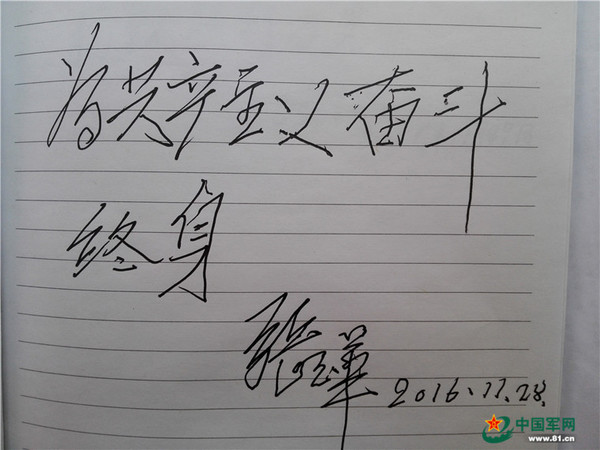 为共产主义奋斗
终身
2016.11.28.
中国军网
www.81.cn